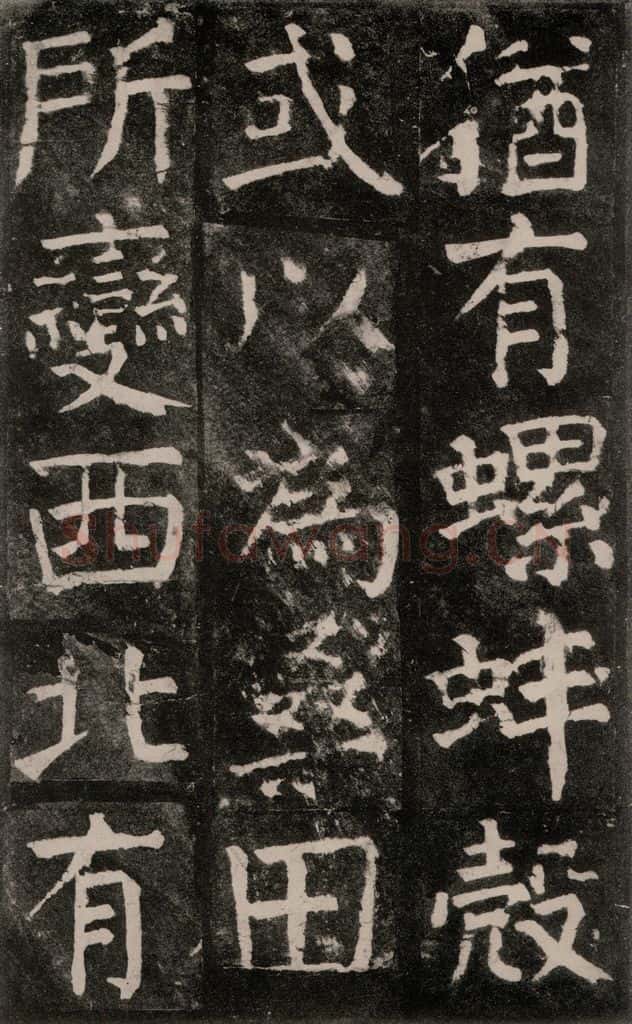 猶有螺蚌殼
或以為桑田
所變西北有
Shufawang.CN